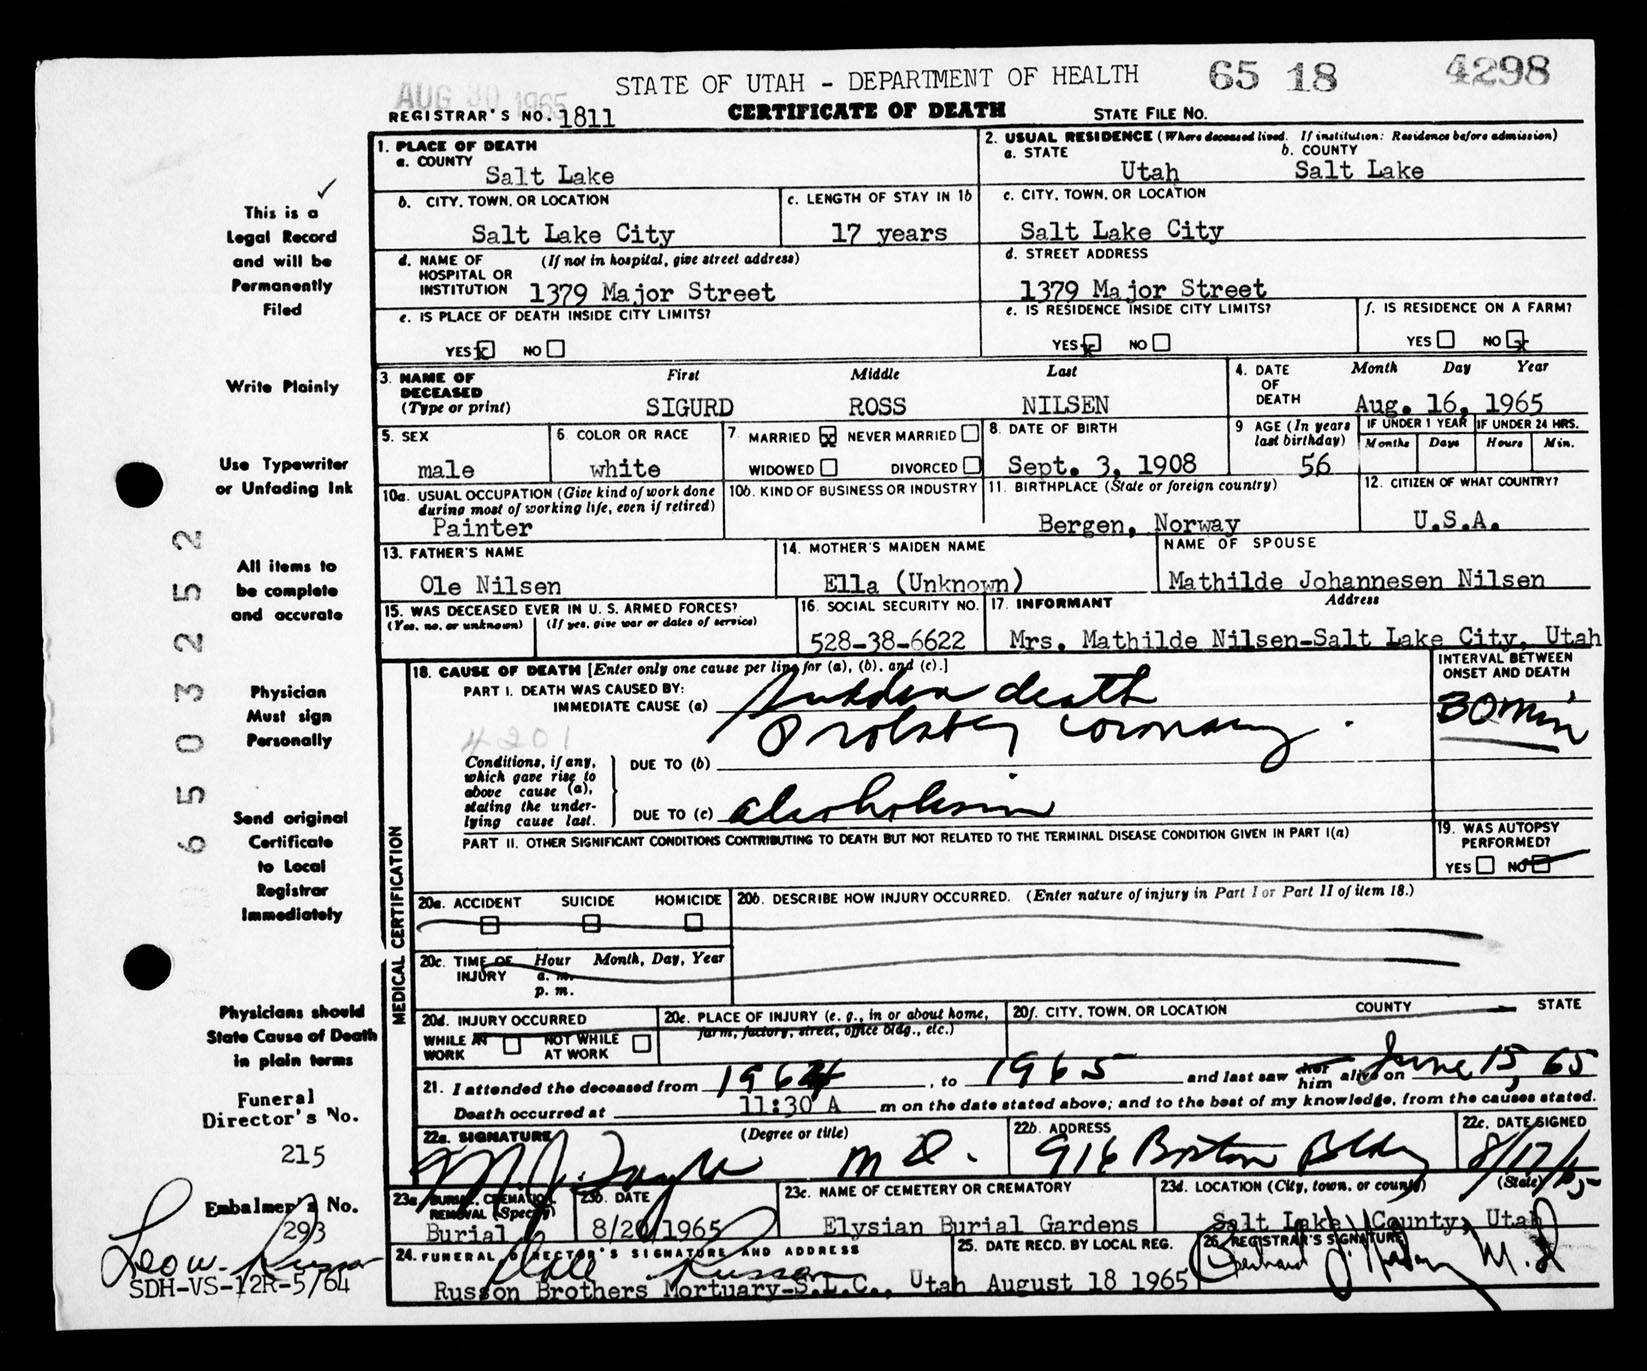 STATE OF UTAH - DEPARTMENT OF HEALTH 65 18 4298
AUG 30 1965
REGISTRAR'S NO. 1811 CERTIFICATE OF DEATH STATE FILE NO.
1. PLACE OF DEATH
a. COUNTY
Salt Lake
2. USUAL RESIDENCE (Where deceased lived. If institution: Residence before admission)
a. STATE b. COUNTY
Utah Salt Lake
b. CITY, TOWN, OR LOCATION
Salt Lake City
c. LENGTH OF STAY IN 1b
17 years
c. CITY, TOWN, OR LOCATION
Salt Lake City
d. NAME OF (If not in hospital, give street address)
HOSPITAL OR
INSTITUTION 1379 Major Street
d. STREET ADDRESS
1379 Major Street
e. IS PLACE OF DEATH INSIDE CITY LIMITS?
YES x NO
e. IS RESIDENCE INSIDE CITY LIMITS?
YES x NO
f. IS RESIDENCE ON A FARM?
YES NO x
3. NAME OF DECEASED (Type or print)
First Middle Last
SIGURD ROSS NILSEN
4. DATE OF DEATH
Month Day Year
Aug. 16, 1965
5. SEX
male
6. COLOR OR RACE
white
7. MARRIED x NEVER MARRIED
WIDOWED DIVORCED
8. DATE OF BIRTH
Sept. 3, 1908
9 AGE (In years last birthday)
56
IF UNDER 1 YEAR
Months Days
IF UNDER 24 HRS.
Hours Min.
10a. USUAL OCCUPATION (Give kind of work done
during most of working life, even if retired)
Painter
10b. KIND OF BUSINESS OR INDUSTRY
11. BIRTHPLACE (State or foreign country)
Bergen, Norway
12. CITIZEN OF WHAT COUNTRY?
U.S.A.
13. FATHER'S NAME
Ole Nilsen
14. MOTHER'S MAIDEN NAME
Ella (Unknown)
NAME OF SPOUSE
Mathilde Johannesen Nilsen
15. WAS DECEASED EVER IN U. S. ARMED FORCES?
(Yes, no, or unknown) (If yes, give war or dates of service)
16. SOCIAL SECURITY NO.
528-38-6622
17. INFORMANT Address
Mrs. Mathilde Nilsen-Salt Lake City, Utah
18. CAUSE OF DEATH [Enter only one cause per line for (a), (b), and (c).]
PART I. DEATH WAS CAUSED BY:
IMMEDIATE CAUSE (a) sudden death
Probably coronary.
4201
Conditions, if any,
which gave rise to
above cause (a),
stating the under-
lying cause last.
DUE TO (b)
DUE TO (c) alcoholism
INTERVAL BETWEEN
ONSET AND DEATH
30 min
PART II. OTHER SIGNIFICANT CONDITIONS CONTRIBUTING TO DEATH BUT NOT RELATED TO THE TERMINAL DISEASE CONDITION GIVEN IN PART I(a)
19. WAS AUTOPSY
PERFORMED?
YES NO
MEDICAL CERTIFICATION
20a. ACCIDENT SUICIDE HOMICIDE
20b. DESCRIBE HOW INJURY OCCURRED. (Enter nature of injury in Part I or Part II of item 18.)
20c. TIME OF INJURY
Hour Month, Day, Year
a. m.
p. m.
20d. INJURY OCCURRED
WHILE AT WORK NOT WHILE AT WORK
20e. PLACE OF INJURY (e. g., in or about home,
farm, factory, street, office bldg., etc.)
20f. CITY, TOWN, OR LOCATION COUNTY STATE
21. I attended the deceased from 1964, to 1965 and last saw her him alive on June 15, 65
Death occurred at 11:30 A m on the date stated above; and to the best of my knowledge, from the causes stated.
22a. SIGNATURE (Degree or title)
M. J. Taylor M D.
22b. ADDRESS
916 Boston Bldg
22c. DATE SIGNED
8/17/65
23a. BURIAL, CREMATION,
REMOVAL (Specify)
Burial
23b. DATE
8/20/1965
23c. NAME OF CEMETERY OR CREMATORY
Elysian Burial Gardens
23d. LOCATION (City, town, or county) (State)
Salt Lake County, Utah
24. FUNERAL DIRECTOR'S SIGNATURE AND ADDRESS
Dale Russon
Russon Brothers Mortuary-S.L.C., Utah
25. DATE RECD. BY LOCAL REG.
August 18 1965
26. REGISTRAR'S SIGNATURE
M.D
This is a
Legal Record
and will be
Permanently
Filed
Write Plainly
Use Typewriter
or Unfading Ink
All items to
be complete
and accurate
Physician
Must sign
Personally
Send original
Certificate
to Local
Registrar
Immediately
Physicians should
State Cause of Death
in plain terms
Funeral
Director's No.
215
Embalmer's No.
293
Leo W. Russon
SDH-VS-12R-5/64
65032252